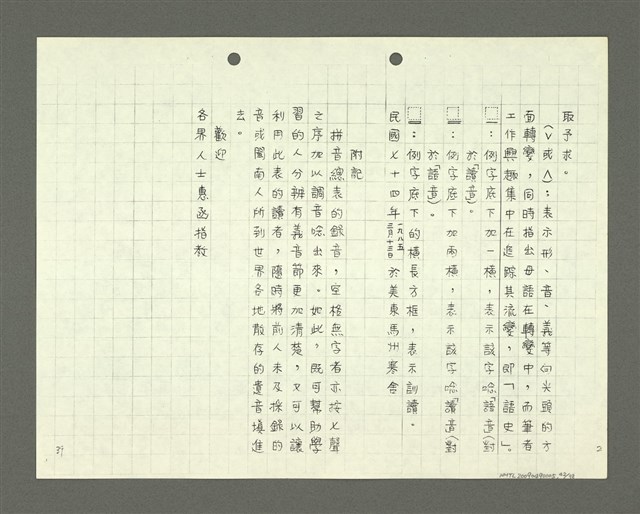 取予求。
（∨或∧）：表示形、音、義等向尖頭的方
面轉變，同時指出母語在轉變中，而筆者
工作興趣集中在追踪其流變，即「語史」。
：例字底下加一橫，表示該字唸「語音」（對
於「讀音」）。
：例字底下加兩橫，表示該字唸「讀音」（對
於「語音」）。
：例字底下的橫長方框，表示訓讀。
民國七十四年 一九八五 三月十三日 於美東馬州寒舍
附記
拼音總表的錄音，空格無字者亦按七聲
之序加以調音唸出來。如此，既可幫助學
習的人分辨有義音節更加清楚，又可以讓
利用此表的讀者，隨時將前人未及採錄的
音或閩南人所到世界各地散存的遺音填進
去。
歡迎
各界人士惠函指教
39
2